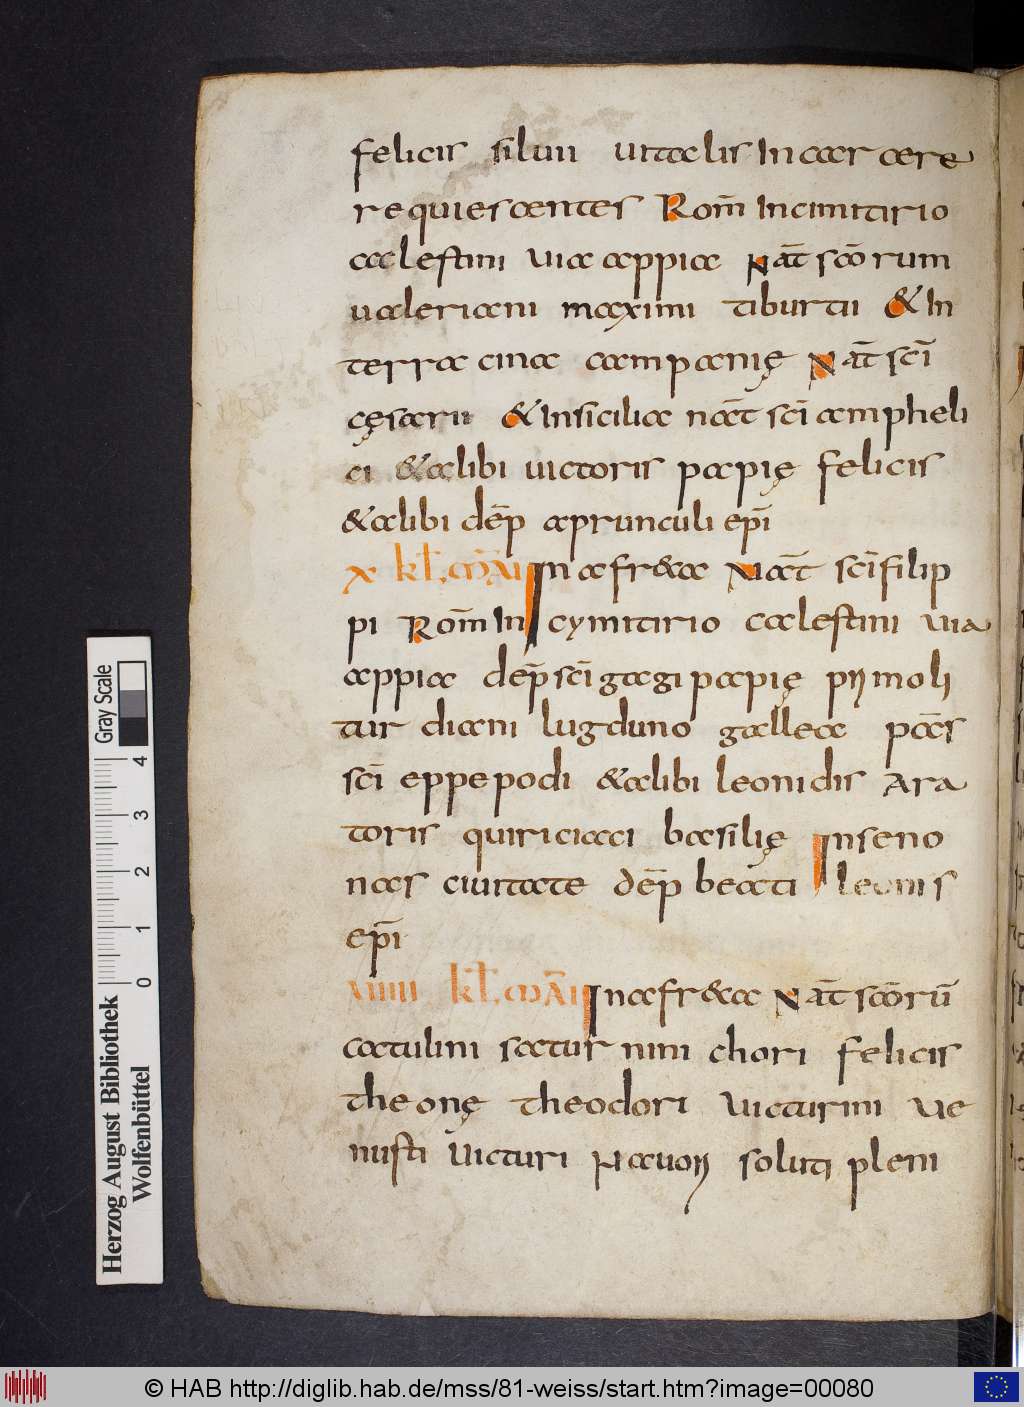 felicis silvii uitalis In carcere
requiescentes Rom̄ Incimitirio
calestini uia appia Nat̄ scōrum
ualeriani maximi tiburtii & In
terra ciua campanię Nat̄ sci̅
cęsarii & Insicilia nat̄ sci̅ ampheli
ci & alibi uictoris papię felicis
& alibi dep̄ aprunculi epi̅
x kl̄. mai In afr&a Nat̄ sci̅ filip
pi Rom̄ In cymitirio calestini uia
appia dep̄ sci̅ gagi papię pymoli
tur diani lugduno galleae pas̄
sci̅ eppepodi & alibi leonidis Ara
toris quiriciaci basilię Inseno
nas ciuitate dep̄ beati leonis
epi̅
viiii kl̄. mai In afr&a Nat̄ scōrū
catulini saturnini chori felicis
theonę theodori uicturini ue
nusti uicturi Nauoy soluti pleni
Gray Scale
4
3
2
1
0
Herzog August Bibliothek
Wolfenbüttel
© HAB http://diglib.hab.de/mss/81-weiss/start.htm?image=00080